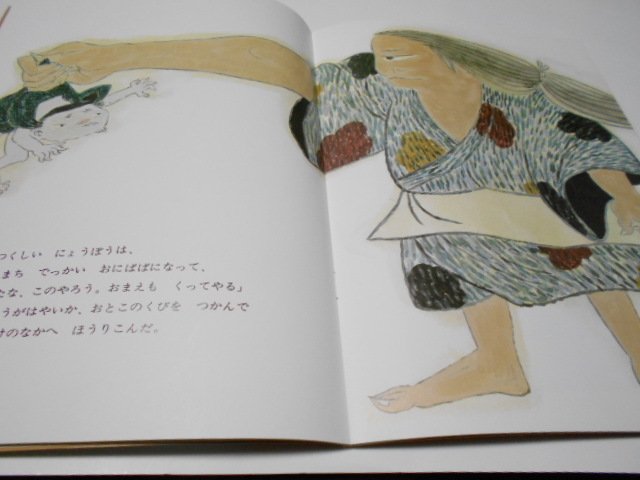 つくしい　にょうぼうは、
まち　でっかい　おにばばになって、
な、このやろう。おまえも　くってやる」
うがはやいか、おとこのくびを　つかんで
のなかへ　ほうりこんだ。